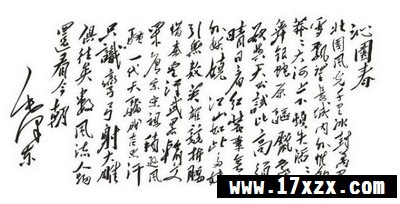 沁園春
北國风光千里冰封萬里
雪飘望長城内外惟餘
莽莽大河上下顿失滔滔
舞银蛇原驱蠟象
欲與天公試比高須
晴日看红装素裹
分外妖娆江山如此多娇
引無數英雄競折腰
惜秦皇漢武略輸文
采唐宗宋祖稍逊風
骚一代天驕成吉思汗
只識彎弓射大雕
俱往矣数風流人物
還看今朝
毛澤东
www.17xzx.com